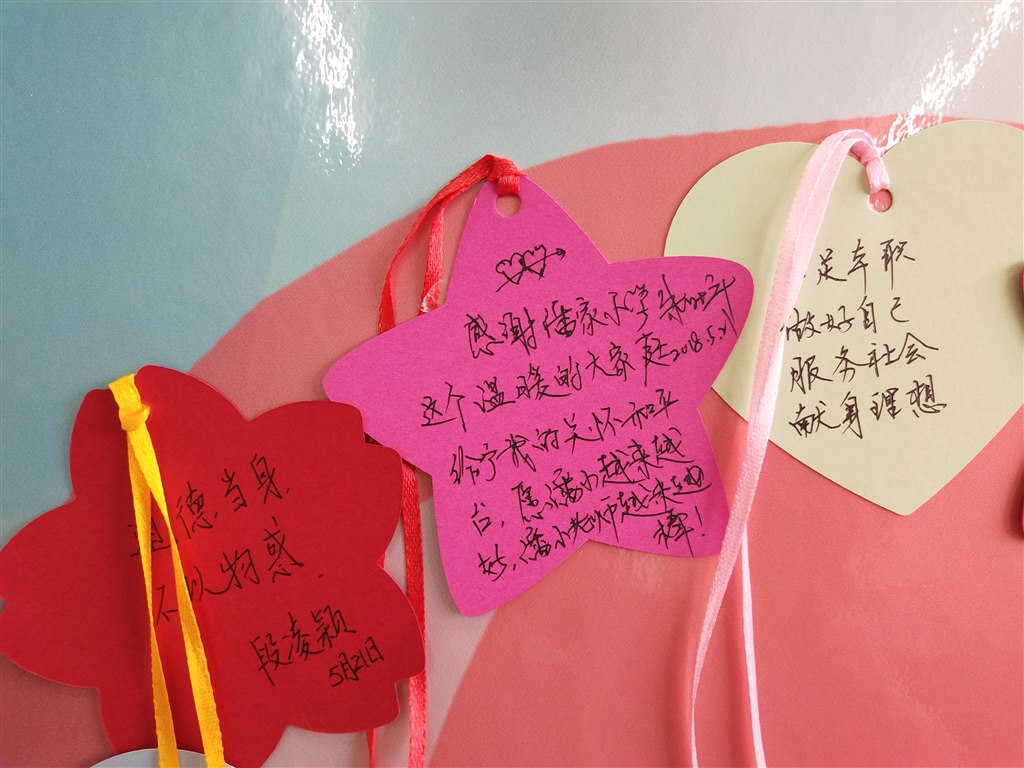 道德当身
不以物惑.
段凌颖
5月21日
感谢潘家小学
这个温暖的大家庭2018.5.21
给予我的关怀和平
台,愿潘小越来越
好,潘小老师越来越
棒!
足本职
做好自己
服务社会
献身理想